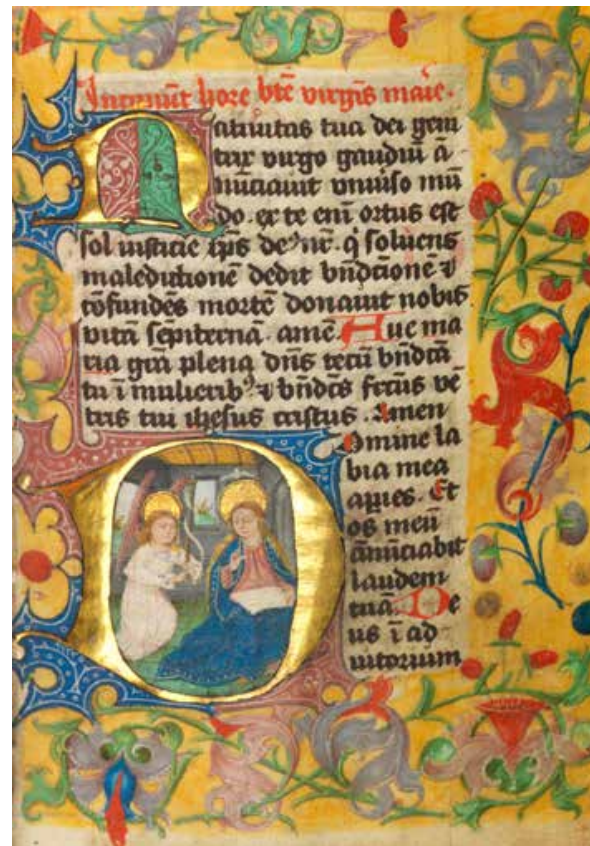 Incipiūt hore btē virgīs marie.
Natiuitas tua dei geni
trix virgo gaudiū ā
nūciauit vniuſo mū
do. ex te enī ortus est
sol iusticie xp̄s de⁹ nr̄. q̇ soluens
maledictionē dedit bn̄dctionē ⁊
cōfundēs mortē donauit nobis
vitā ſēpiternā. amē. Aue ma
ria grā plena dn̄s tecū bn̄dcā
tu ī mulierib⁹ ⁊ bn̄dcs frcūs vē
tris tui ihesus cristus. Amen
Domine la
bia mea
apies. Et
os meū
ānūciabit
laudem
tuā. De
us ī ad
iutorium